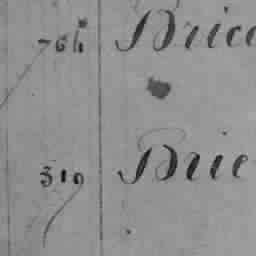 764 Brice
319 Brie